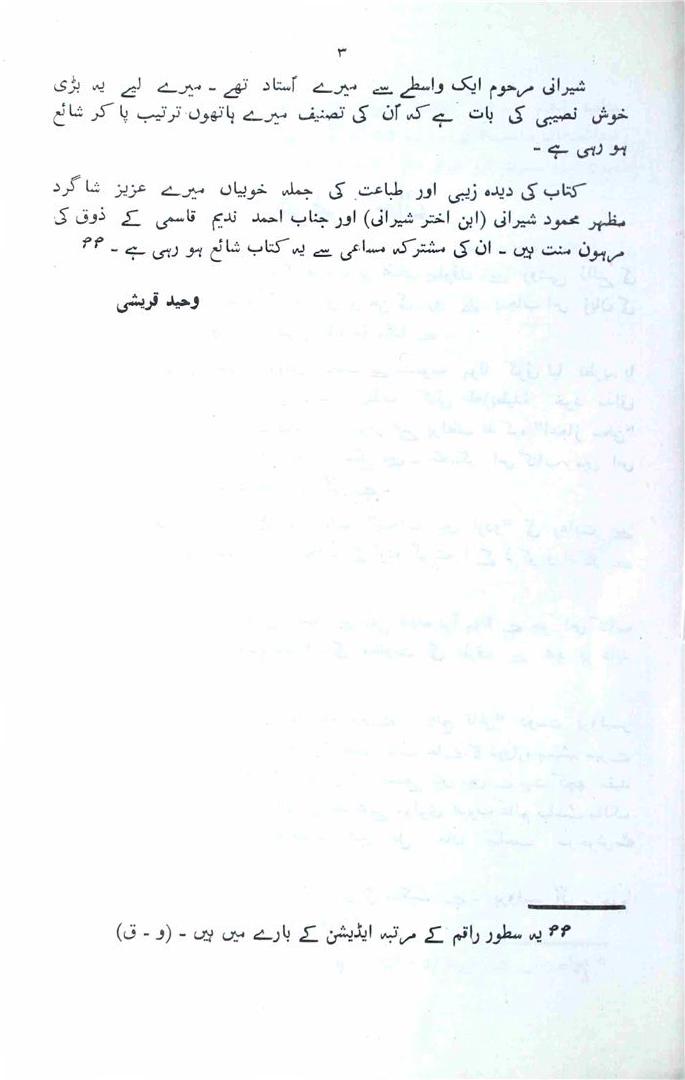 ۳
شیرانی مرحوم ایک واسطے سے میرے اُستاد تھے ۔ میرے لیے یہ بڑی
خوش نصیبی کی بات ہے کہ اُن کی تصنیف میرے ہاتھوں ترتیب پا کر شائع
ہو رہی ہے ۔
کتاب کی دیدہ زیبی اور طباعت کی جملہ خوبیاں میرے عزیز شاگرد
مظہر محمود شیرانی (ابن اختر شیرانی) اور جناب احمد ندیم قاسمی کے ذوق کی
مرہون منت ہیں ۔ ان کی مشترکہ مساعی سے یہ کتاب شائع ہو رہی ہے ۔
وحید قریشی
یہ سطور راقم کے مرتبہ ایڈیشن کے بارے میں ہیں ۔ (و ۔ ق)